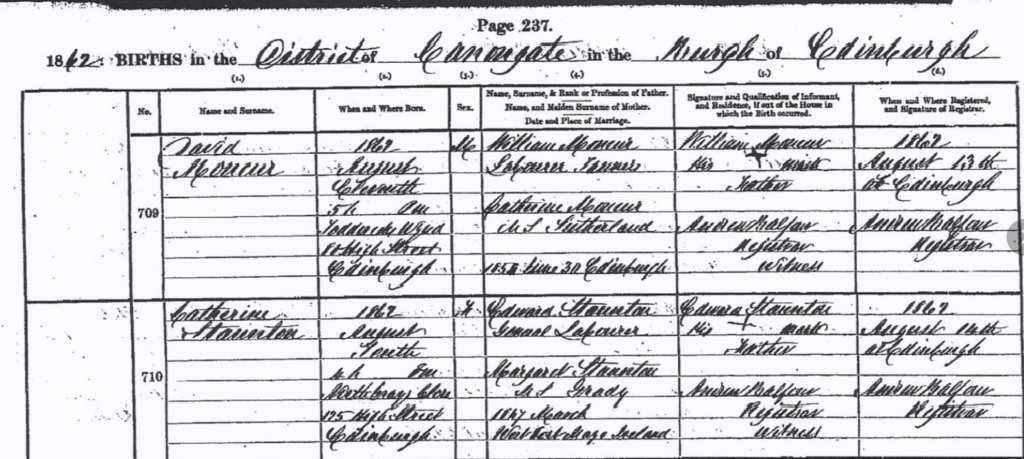 Page 237.
1862. BIRTHS in the District of Canongate in the Burgh of Edinburgh
(1.) (2.) (3.) (4.) (5.) (6.)
No.
Name and Surname.
When and Where Born.
Sex.
Name, Surname, & Rank or Profession of Father.
Name, and Maiden Surname of Mother.
Date and Place of Marriage.
Signature and Qualification of Informant,
and Residence, if out of the House in
which the Birth occurred.
When and Where Registered,
and Signature of Registrar.
709
David
Moncur
1862
August
Eleventh
5h Pm
Wynd
High Street
Edinburgh
M
William Moncur
Labourer
Catherine Moncur
M.S. Sutherland
June 30 Edinburgh
William Moncur
His + mark
Father
Andrew Balfour
Registrar
Witness
1862
August 13th
at Edinburgh
Andrew Balfour
Registrar
710
Catherine
Staunton
1862
August
4h Pm
North Grays Close
125 High Street
Edinburgh
F
Edward Staunton
General Labourer
Margaret Staunton
M.S. Grady
1847 March
Westport Mayo Ireland
Edward Staunton
His + mark
Father
Andrew Balfour
Registrar
Witness
1862
August 14th
at Edinburgh
Andrew Balfour
Registrar